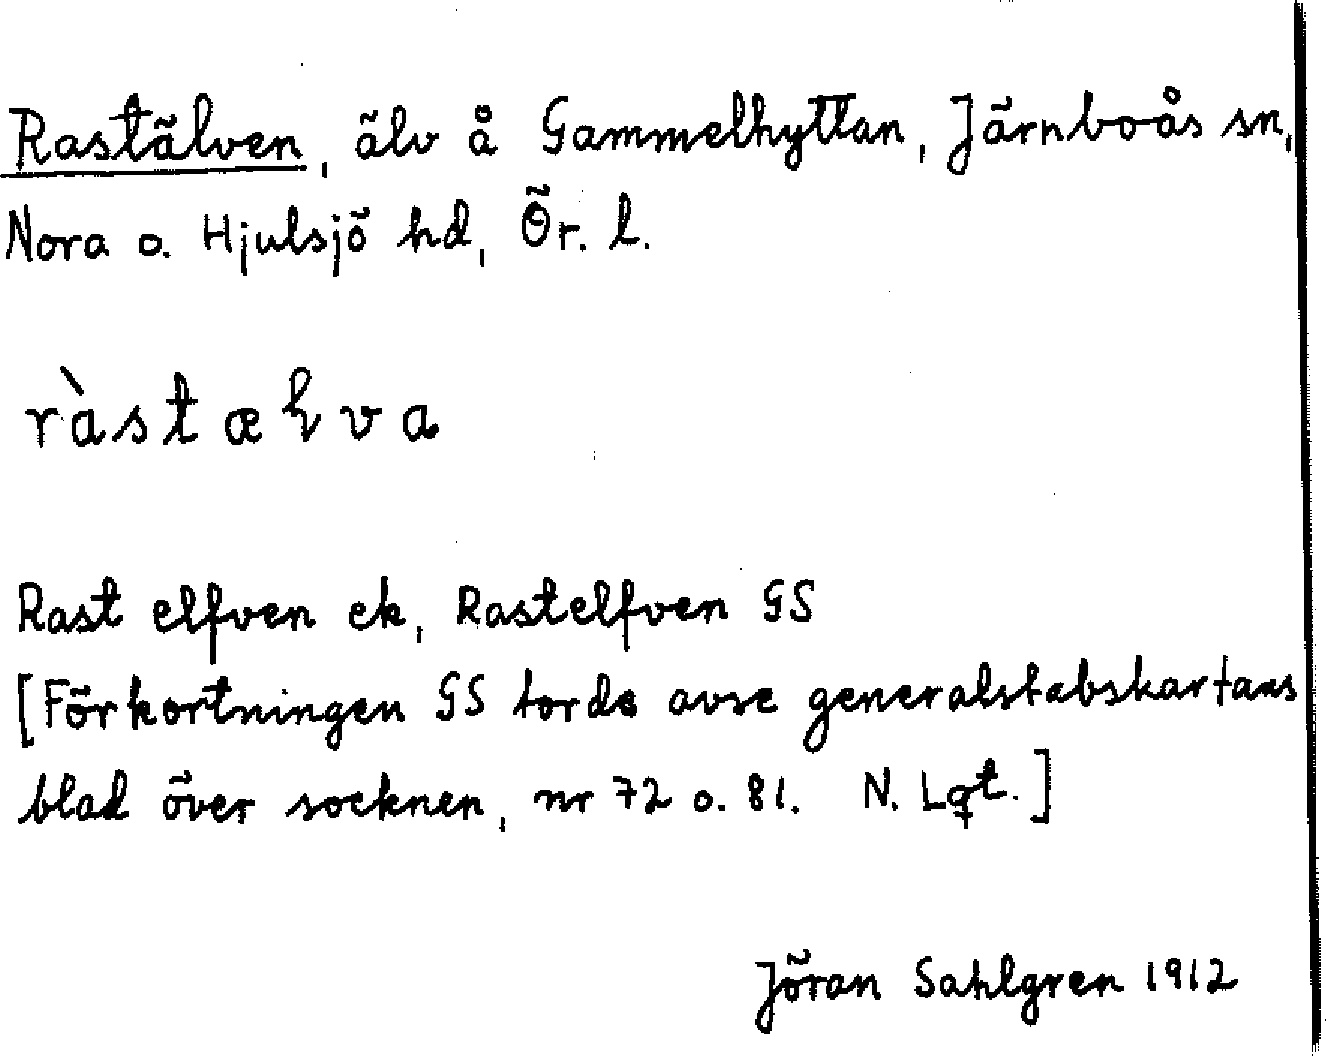 Rastälven, älv å Gammelhyttan, Järnboås sn,
Nora o. Hjulsjö hd, Ör. l.
ràstæɫva
Rast elfven ek, Rastelfven GS
[Förkortningen GS torde avse generalstabskartans
blad över socknen, nr 72 o. 81. N. Lqt.]
Jöran Sahlgren 1912